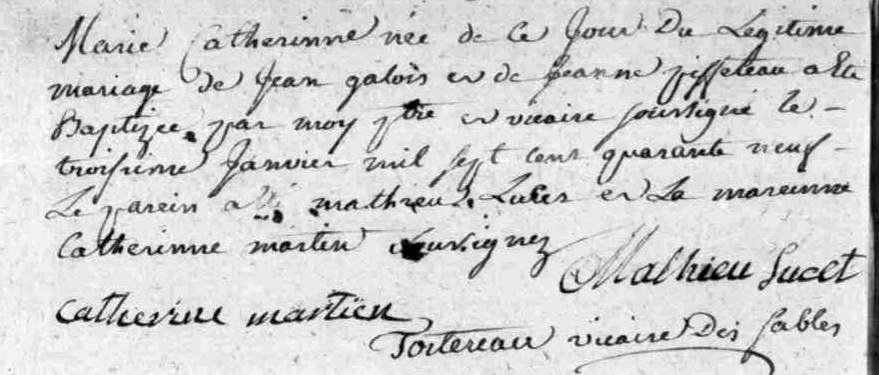 Marie Catherinne née de ce Jour Du Legitime
mariage de Jean galois et de Jeanne piffeteau a Eté
Baptizée par moy ptre et vicaire soussigné le
troisieme Janvier mil sept cent quarante neuf
Le parein a été mathieu Lucet et La mareinne
Catherinne martin soussignez
Mathieu Lucet
catherine martien
Tortereau vicaire Des Sables